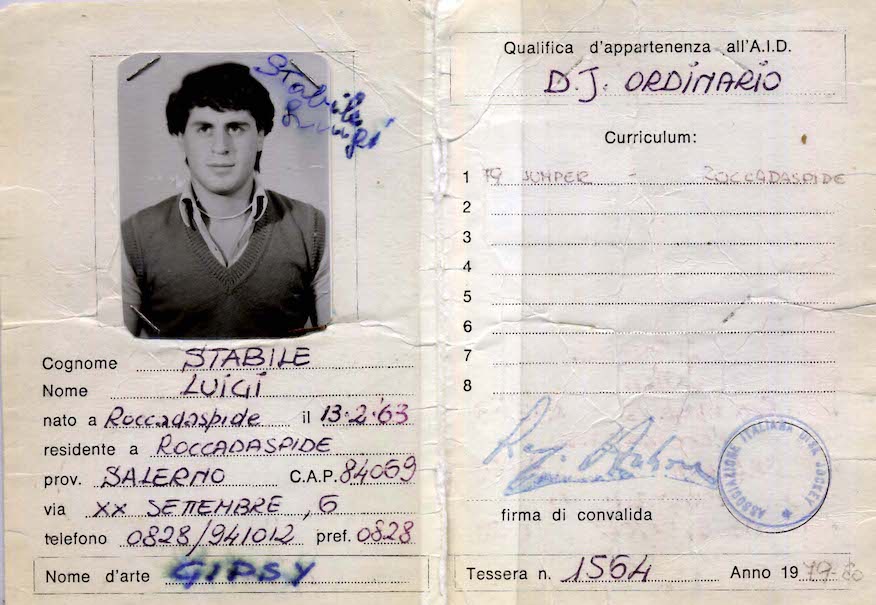 Stabile
Luigi
Cognome STABILE
Nome LUIGI
nato a Roccadaspide il 13·2·'63
residente a ROCCADASPIDE
prov. SALERNO C.A.P. 84069
via XX SETTEMBRE, 6
telefono 0828/941012 pref. 0828
Nome d'arte GIPSY
Qualifica d'appartenenza all'A.I.D.
D.J. ORDINARIO
Curriculum:
1 79 JUMPER - ROCCADASPIDE
2
3
4
5
6
7
8
firma di convalida
ASSOCIAZIONE ITALIANA DISK JOCKEY
Tessera n. 1564 Anno 1979-80